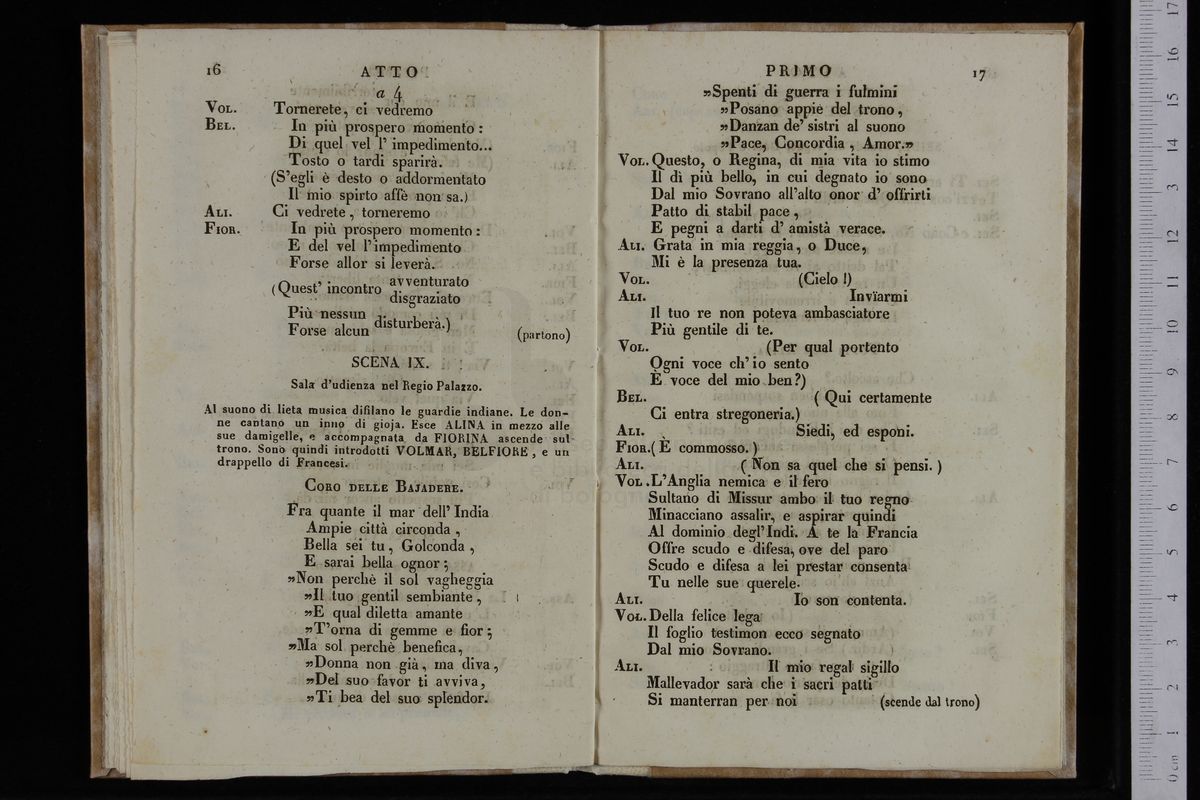 16 ATTO
a 4
VOL. Tornerete, ci vedremo
BEL. In più prospero momento :
Di quel vel l' impedimento...
Tosto o tardi sparirà.
(S'egli è desto o addormentato
Il mio spirto affè non sa.)
ALI. Ci vedrete, torneremo
FIOR. In più prospero momento :
E del vel l'impedimento
Forse allor si leverà.
(Quest' incontro avventurato
disgraziato
Più nessun
Forse alcun disturberà.) (partono)
SCENA IX.
Sala d'udienza nel Regio Palazzo.
Al suono di lieta musica difilano le guardie indiane. Le don-
ne cantano un inno di gioja. Esce ALINA in mezzo alle
sue damigelle, e accompagnata da FIORINA ascende sul
trono. Sono quindi introdotti VOLMAR, BELFIORE, e un
drappello di Francesi.
CORO DELLE BAJADERE.
Fra quante il mar dell' India
Ampie città circonda ,
Bella sei tu, Golconda ,
E sarai bella ognor;
»Non perchè il sol vagheggia
»Il tuo gentil sembiante ,
»E qual diletta amante
»T'orna di gemme e fior;
»Ma sol perchè benefica,
»Donna non già, ma diva,
»Del suo favor ti avviva,
»Ti bea del suo splendor.
PRIMO 17
»Spenti di guerra i fulmini
»Posano appiè del trono ,
»Danzan de' sistri al suono
»Pace, Concordia , Amor.»
VOL. Questo, o Regina, di mia vita io stimo
Il dì più bello, in cui degnato io sono
Dal mio Sovrano all'alto onor d' offrirti
Patto di stabil pace ,
E pegni a darti d' amistà verace.
ALI. Grata in mia reggia, o Duce,
Mi è la presenza tua.
VOL. (Cielo !)
ALI. Invïarmi
Il tuo re non poteva ambasciatore
Più gentile di te.
VOL. (Per qual portento
Ogni voce ch' io sento
È voce del mio ben?)
BEL. ( Qui certamente
Ci entra stregoneria.)
ALI. Siedi, ed esponi.
FIOR. ( È commosso. )
ALI. ( Non sa quel che si pensi. )
VOL. L'Anglia nemica e il fero
Sultano di Missur ambo il tuo regno
Minacciano assalir, e aspirar quindi
Al dominio degl'Indi. A te la Francia
Offre scudo e difesa, ove del paro
Scudo e difesa a lei prestar consenta
Tu nelle sue querele.
ALI. Io son contenta.
VOL. Della felice lega
Il foglio testimon ecco segnato
Dal mio Sovrano.
ALI. Il mio regal sigillo
Mallevador sarà che i sacri patti
Si manterran per noi (scende dal trono)
0 cm 1 2 3 4 5 6 7 8 9 10 11 12 13 14 15 16 17